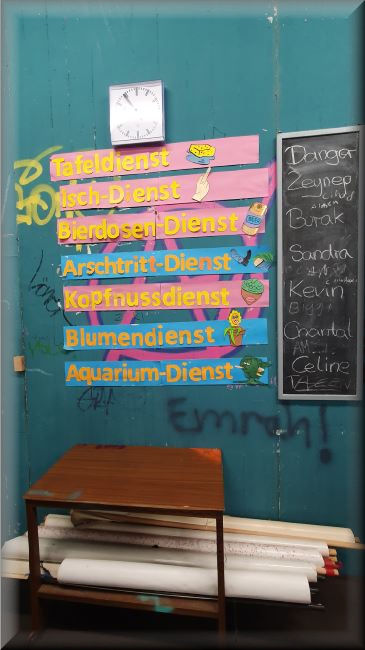 Tafeldienst
isch-Dienst
Bierdosen-Dienst
Arschtritt-Dienst
Kopfnussdienst
Blumendienst
Aquarium-Dienst
Danger
Zeynep
Burak
Sandra
Kevin
Chantal
Celine
Emrah!